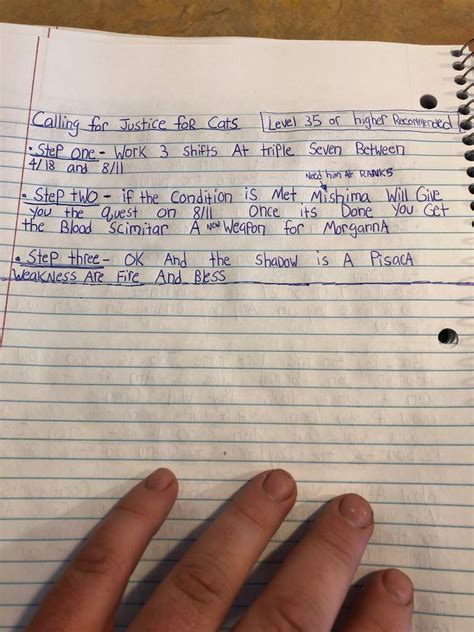 Calling for Justice for Cats Level 35 or higher Recommended
• Step one - Work 3 shifts At triple Seven Between
4/18 and 8/11
Need him At RANK5
• Step two - if the Condition is Met Mishima Will Give
You the Quest on 8/11 Once its Done You Get
the Blood Scimitar A New Weapon for MorgannA
• Step three - OK And the Shadow is A Pisaca
Weakness Are Fire And Bless